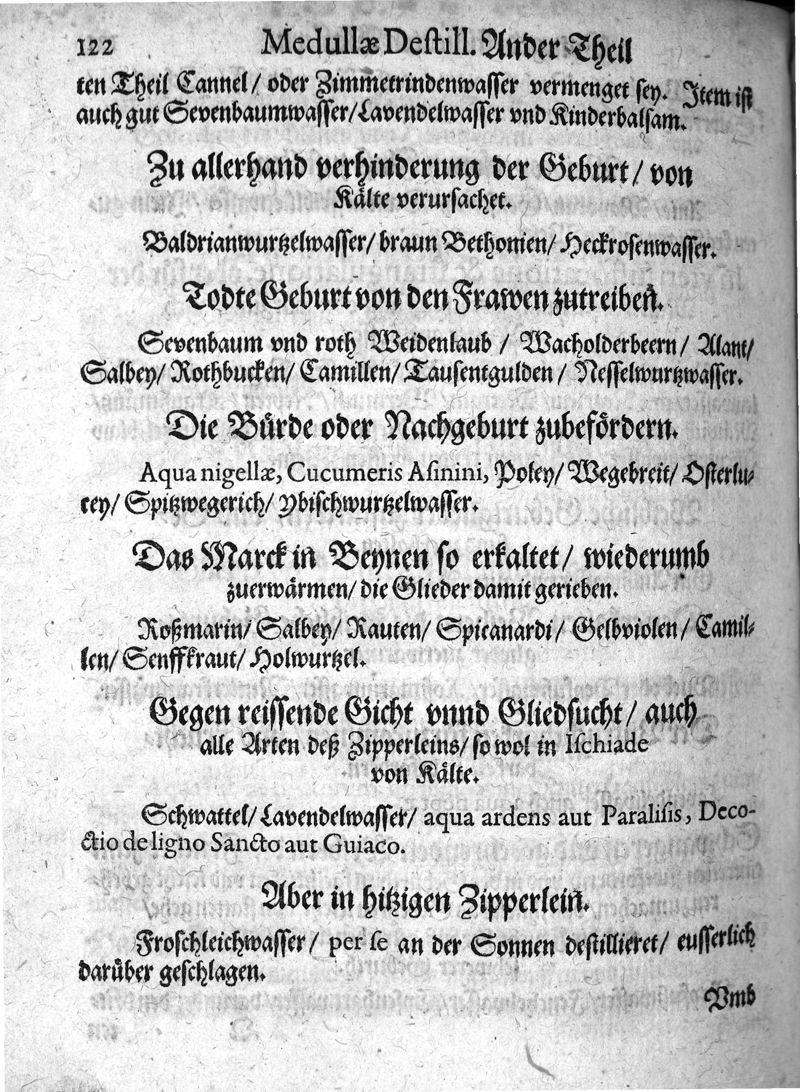 122 Medullæ Destill. Ander Theil
ten Theil Cannel/ oder Zimmetrindenwasser vermenget sey. Item ist
auch gut Sevenbaumwasser/Lavendelwasser vnd Kinderbalsam.
Zu allerhand verhinderung der Geburt/ von
Kälte verursachet.
Baldrianwurtzelwasser/ braun Bethonien/ Heckrosenwasser.
Todte Geburt von den Frawen zutreibeñ.
Sevenbaum vnd roth Weidenlaub / Wacholderbeern/ Alant/
Salbey/ Rothbucken/ Camillen/ Tausentgulden / Nesselwurtzwasser.
Die Bürde oder Nachgeburt zubefördern.
Aqua nigellæ, Cucumeris Asinini, Poley/ Wegebreit/ Osterlu-
cey/ Spitzwegerich/ Ybischwurtzelwasser.
Das Marck in Beynen so erkaltet/ wiederumb
zuerwärmen/ die Glieder damit gerieben.
Roßmarin/ Salbey/ Rauten/ Spicanardi/ Gelbviolen/ Camil-
len/ Senffkraut/ Holwurtzel.
Gegen reissende Gicht vnnd Gliedsucht/ auch
alle Arten deß Zipperleins/ so wol in Ischiade
von Kälte.
Schwattel/ Lavendelwasser/ aqua ardens aut Paralisis, Deco-
ctio de ligno Sancto aut Guiaco.
Aber in hitzigen Zipperleiñ.
Froschleichwasser/ per se an der Sonnen destillieret/ eusserlich
darüber geschlagen.
Vmb